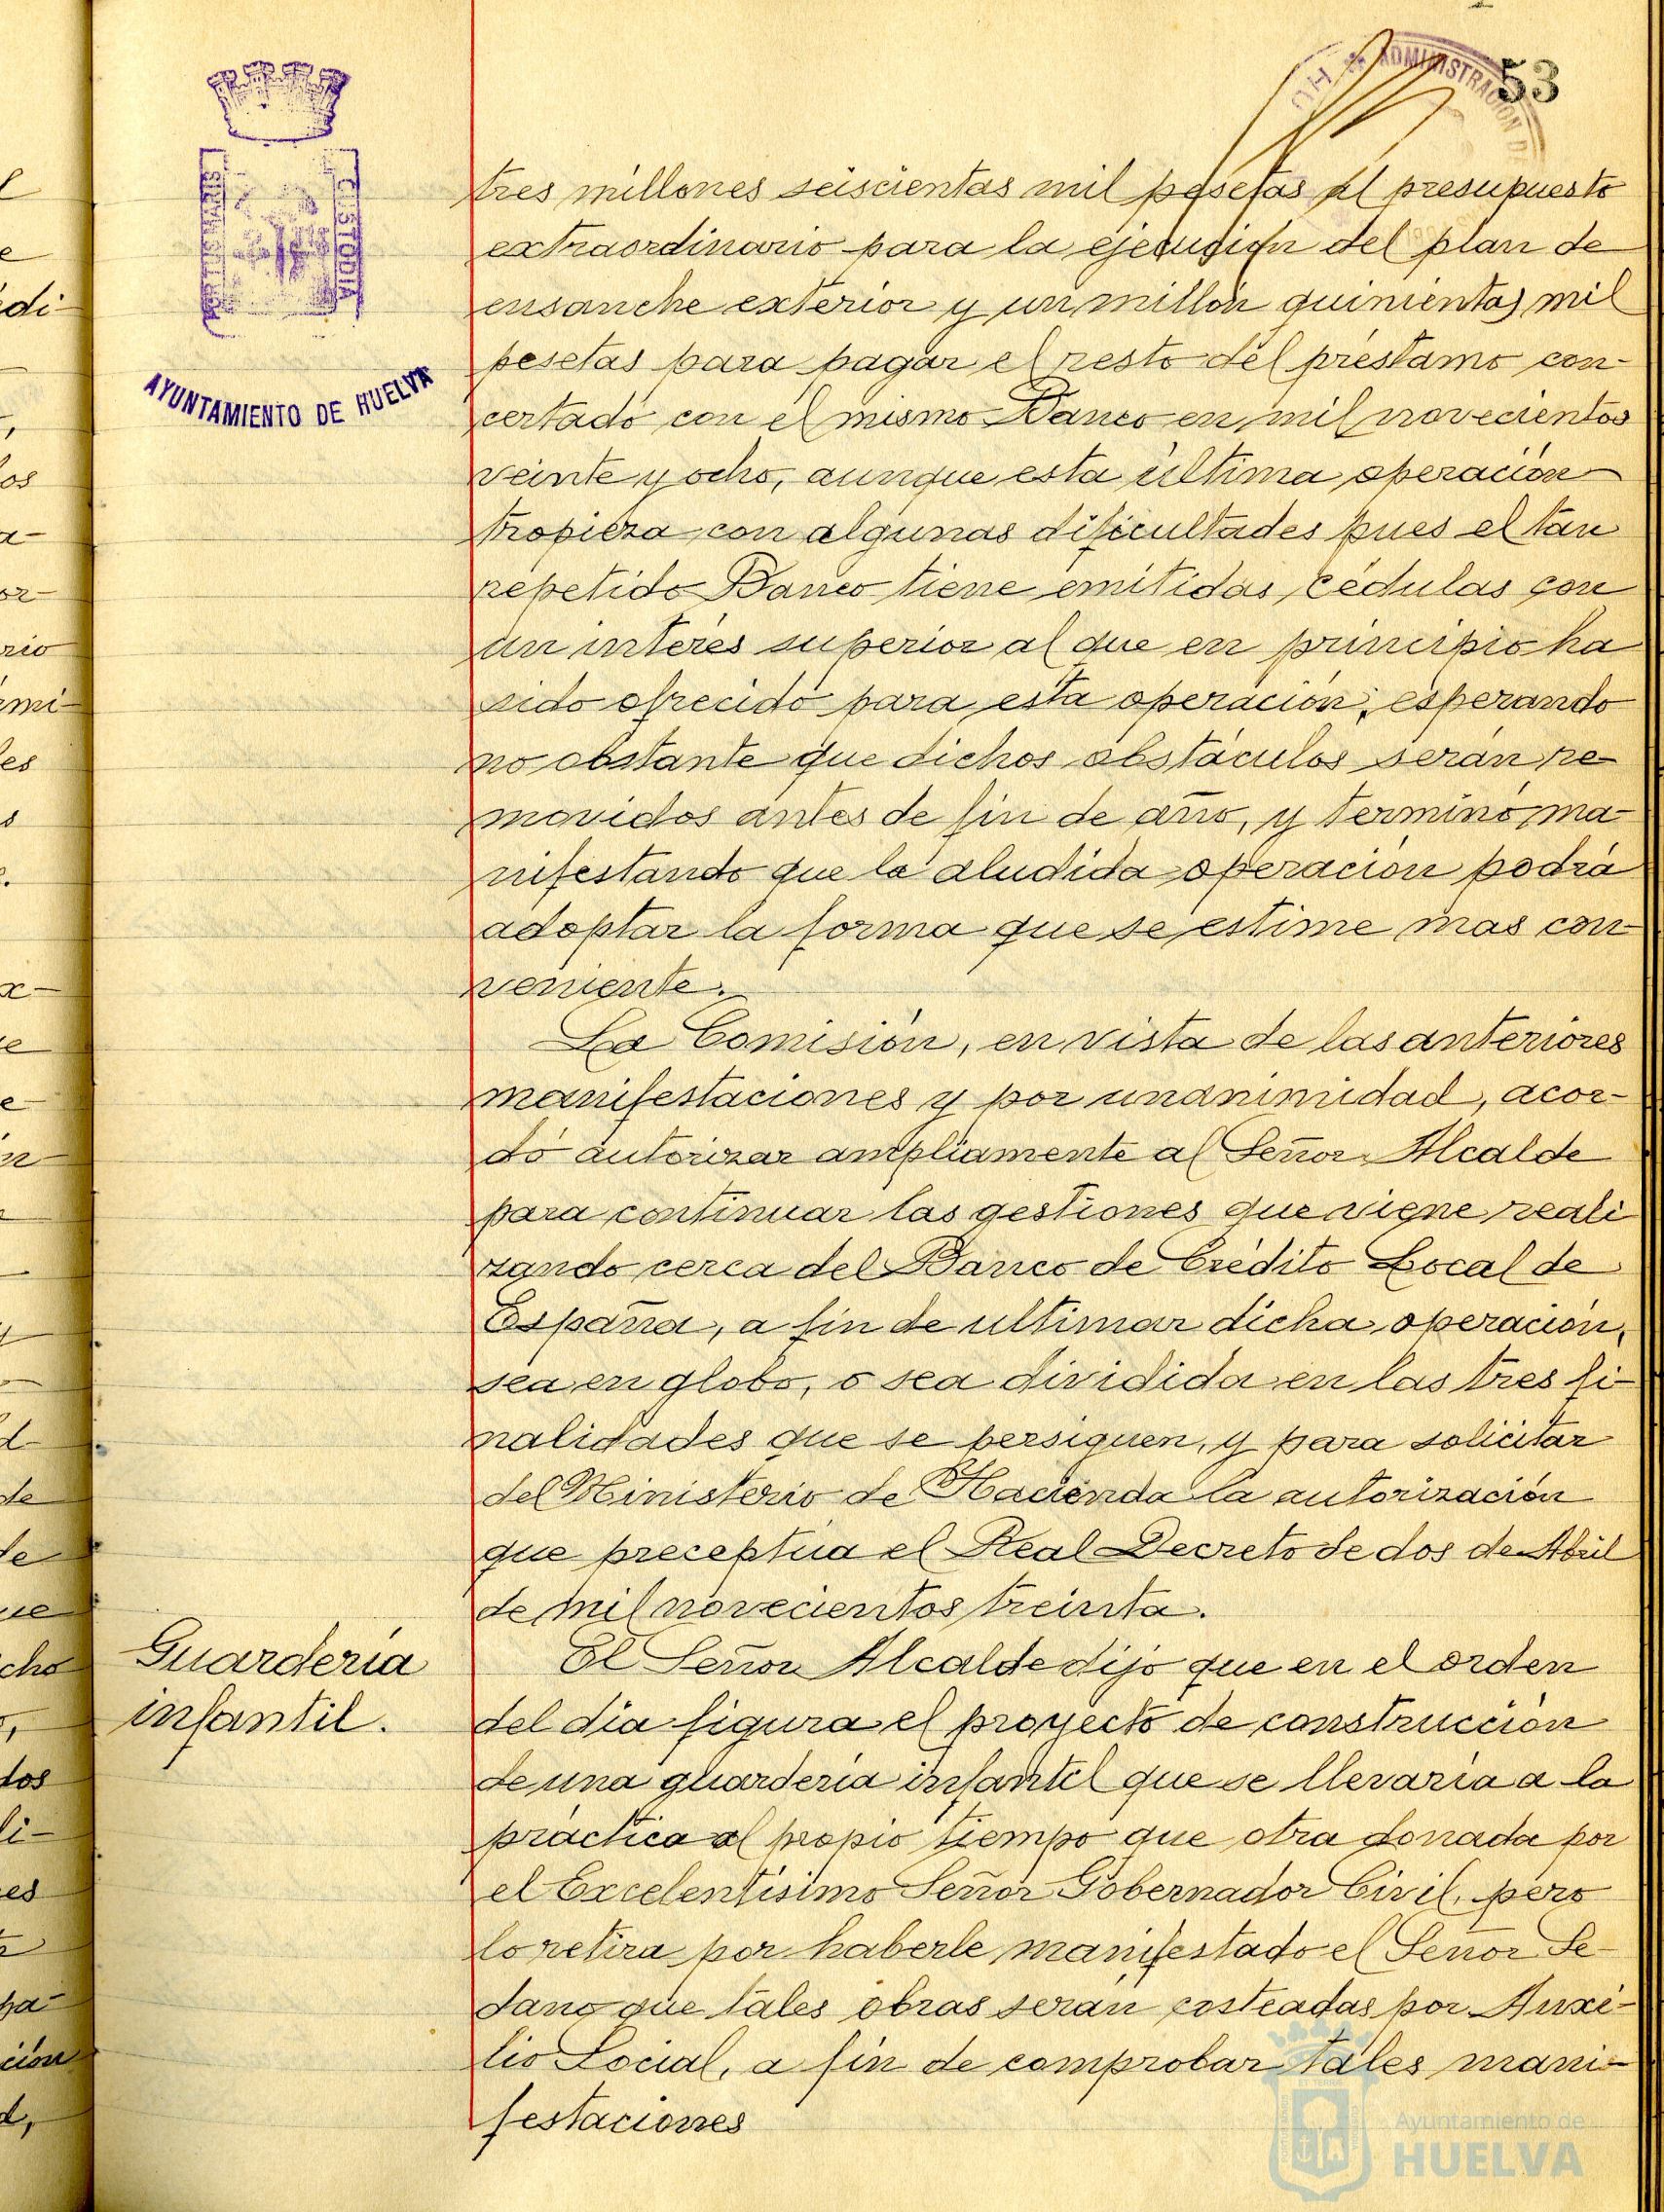 53
ADMINISTRACION D
HU
PORTUS MARIS
CUSTODIA
AYUNTAMIENTO DE HUELVA
tres millones seiscientas mil pesetas al presupuesto
extraordinario para la ejecución del plan de
ensanche exterior y un millón quinientas mil
pesetas para pagar el resto del préstamo con-
certado con el mismo Banco en mil novecientos
veinte y ocho, aunque esta última operación
tropieza con algunas dificultades pues el tan
repetido Banco tiene emitidas cédulas con
un interés superior al que en principio ha
sido ofrecido para esta operación, esperando
no obstante que dichos obstáculos serán re-
movidos antes de fin de año, y terminó ma-
nifestando que la aludida operación podrá
adoptar la forma que se estime mas con-
veniente.
La Comisión, en vista de las anteriores
manifestaciones y por unanimidad, acor-
dó autorizar ampliamente al Señor Alcalde
para continuar las gestiones que viene reali
zando cerca del Banco de Crédito Local de
España, a fin de ultimar dicha operación,
sea en globo, o sea dividida en las tres fi-
nalidades que se persiguen, y para solicitar
del Ministerio de Hacienda la autorización
que preceptúa el Real Decreto de dos de Abril
de mil novecientos treinta.
Guardería
infantil.
El Señor Alcalde dijo que en el orden
del día figura el proyecto de construcción
de una guardería infantil que se llevaría a la
práctica al propio tiempo que otra donada por
el Excelentísimo Señor Gobernador Civil, pero
lo retira por haberle manifestado el Señor Se-
dano que tales obras serán costeadas por Auxi-
lio Social, a fin de comprobar tales mani-
festaciones
Ayuntamiento de
HUELVA